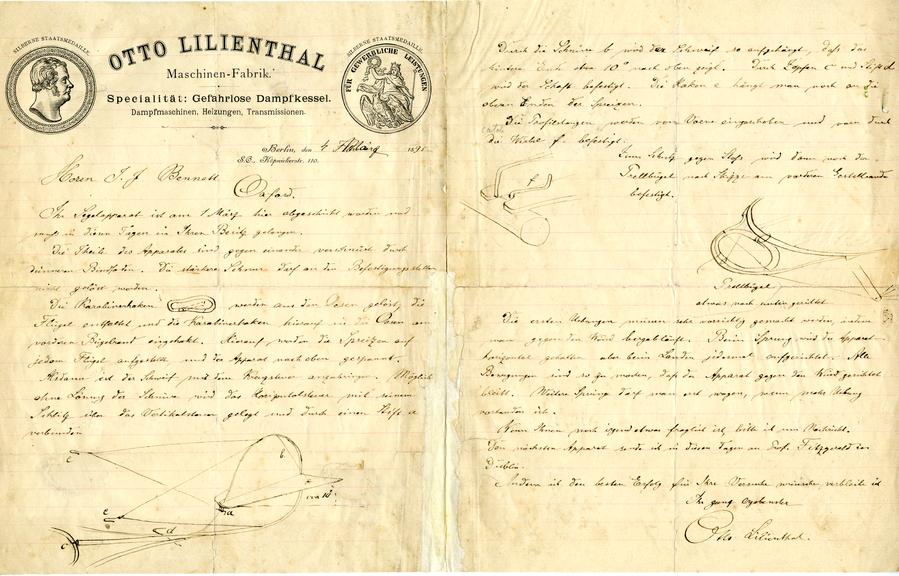 SILBERNE STAATSMEDAILLE.
OTTO LILIENTHAL
Maschinen-Fabrik.
Specialität: Gefahrlose Dampfkessel.
Dampfmaschinen, Heizungen, Transmissionen.
SILBERNE STAATSMEDAILLE.
FÜR GEWERBLICHE LEISTUNGEN
Berlin, den 4 189
S.O. Köpnickerstr. 110.
Herrn T. J. Bennett
Oxford.
Ihr Segelapparat ist am 1 März hier abgeschickt worden und
muß in diesen Tagen in Ihren Besitz gelangen.
Die Theile des Apparates sind gegen einander verschnürt durch
dünneren Bindfaden. Die stärkere Schnur darf an den Befestigungsstellen
nicht gelöst werden.
Die Karabinerhaken werden aus den Oesen gelöst, die
Flügel entfaltet und die Karabinerhaken hierauf in die Oesen am
vorderen Bügelrand eingehakt. Hierauf werden die Spreizen auf
jedem Flügel aufgestellt und der Apparat nach oben gespannt.
Alsdann ist der Schweif mit dem anzubringen. Möglichst
ohne Lösung der Schnüre wird das Horizontalsteuer mit seinem
Schlitz über das Vertikalsteuer gelegt und durch einen Stift a
verbunden
c
b
a
10°
e
d
c
Durch die Schnüre b wird der Schweif so aufgehängt, daß das
hintere Ende etwa 10° nach oben zeigt. Durch Zapfen c und Stift d
wird der Schaft befestigt. Die Haken e hängt man noch an die
oberen Enden der Spreizen.
Die Profilstangen werden von Vorne eingeschoben und vorn durch
die Wirbel f. befestigt.
f
Zum Schutz gegen Stoß wird dann noch der
Prellbügel nach Skizze am vorderen Gestellrande
befestigt.
Prellbügel
etwas nach unten gerichtet
Die ersten Uebungen müssen sehr vorsichtig gemacht werden, indem
man gegen den Wind bergabläuft. Beim Sprung wird der Apparat
horizontal gehalten aber beim Landen jedesmal aufgerichtet. Alle
Bewegungen sind so zu machen, daß der Apparat gegen den Wind gerichtet
bleibt. Weitere Sprünge darf man erst wagen, wenn mehr Uebung
vorhanden ist.
Wenn Ihnen noch irgend etwas fraglich ist, bitte ich um Nachricht.
Den nächsten Apparat sende ich in diesen Tagen an Prof. Fitzgerald in
Dublin.
Indem ich den besten Erfolg für Ihre Versuche wünsche, verbleibe ich
Ihr ganz ergebenster
Otto Lilienthal.